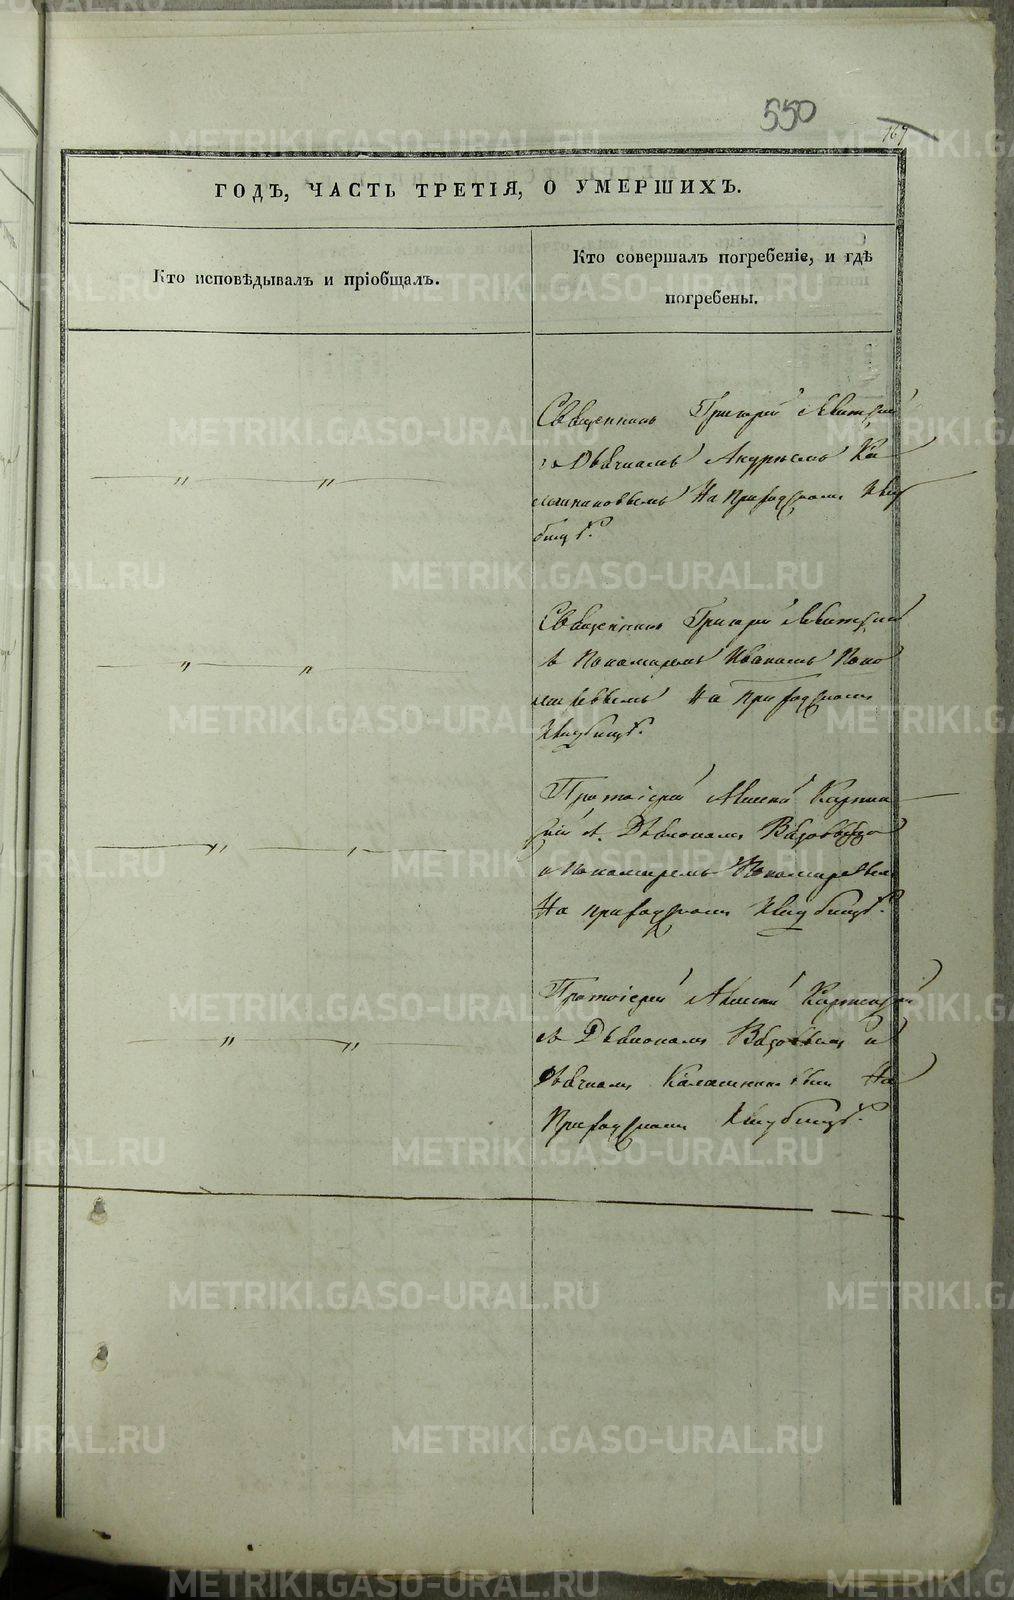 550
169
ГОДЪ, ЧАСТЬ ТРЕТІЯ, О УМЕРШИХЪ.
Кто исповѣдывалъ и пріобщалъ.
Кто совершалъ погребеніе, и гдѣ
погребены.
Священникъ Григорій Левитскій
съ Дьячкомъ Андреемъ Ка
лашниковымъ На Приходскомъ Клад
бищѣ.
" "
Священникъ Григорій Левитскій
съ Пономаремъ Иваномъ Поно
маревымъ На Приходскомъ
Кладбищѣ.
" "
Протоіерей Алексѣй Карпин
скій съ Діакономъ
и Пономаремъ Пономаревым
На приходскомъ Кладбищѣ.
" "
Протоіерей Алексѣй Карпинскій
съ Діакономъ и
Дьячкомъ Калашниковым На
Приходскомъ Кладбищѣ.
" "
METRIKI.GASO-URAL.RU